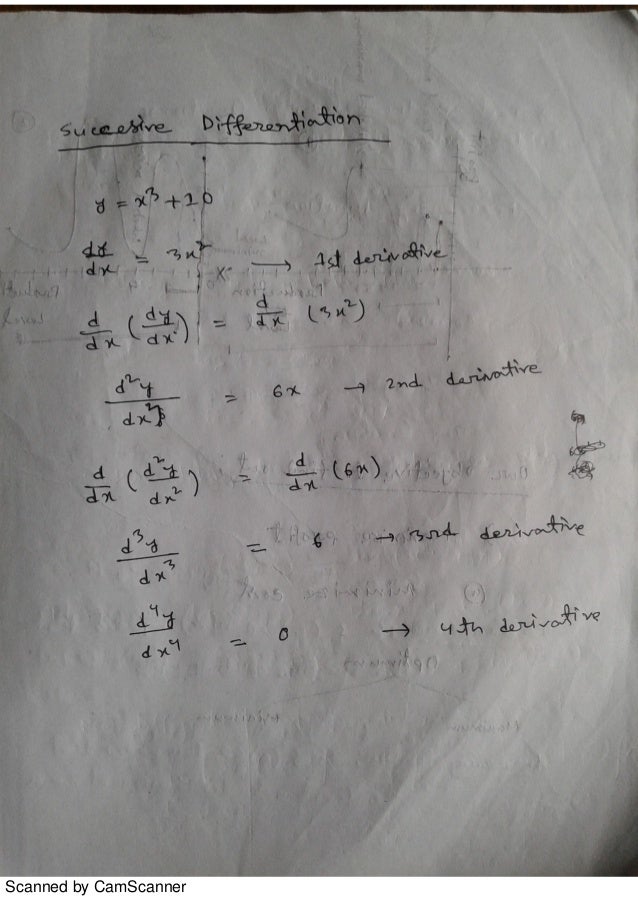 Succesive Differentiation
y = x³ + 10
dy/dx = 3x² → 1st derivative
d/dx (dy/dx) = d/dx (3x²)
d²y/dx² = 6x → 2nd derivative
d/dx (d²y/dx²) = d/dx (6x)
d³y/dx³ = 6 → 3rd derivative
d⁴y/dx⁴ = 0 → 4th derivative
Scanned by CamScanner